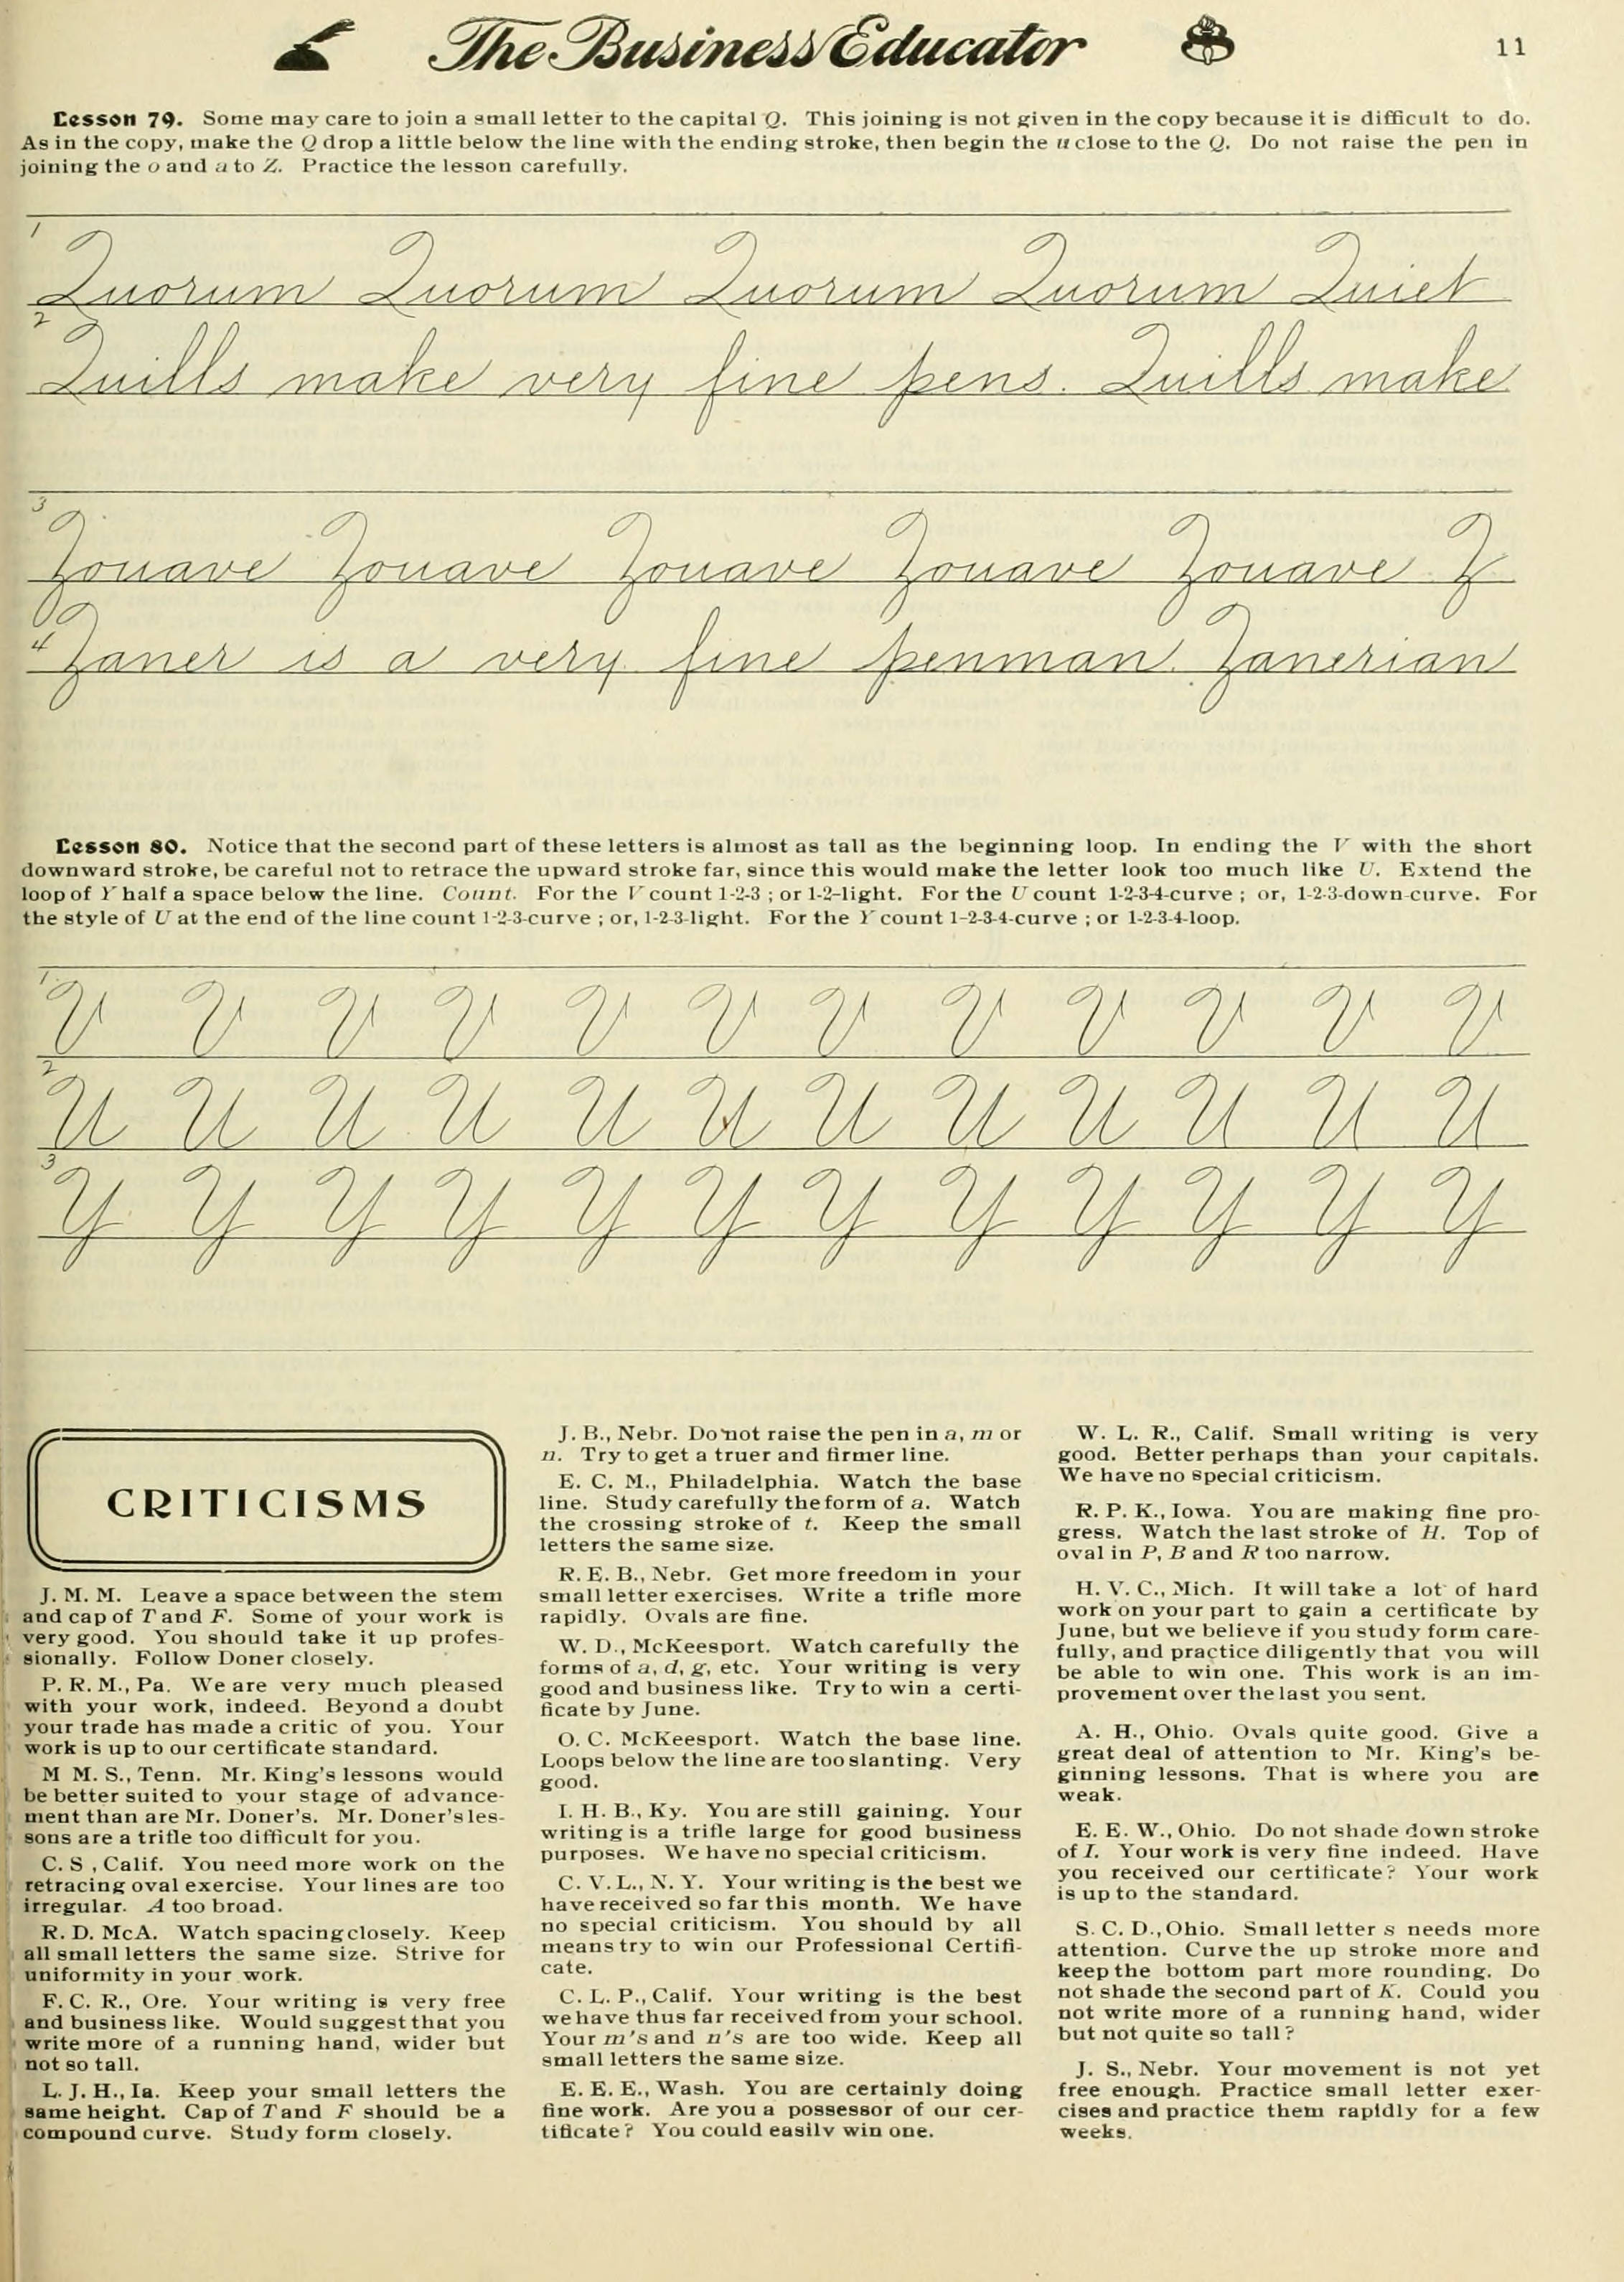 The Business Educator
11
Lesson 79. Some may care to join a small letter to the capital Q. This joining is not given in the copy because it is difficult to do.
As in the copy, make the Q drop a little below the line with the ending stroke, then begin the u close to the Q. Do not raise the pen in
joining the o and a to Z. Practice the lesson carefully.
1
Quorum Quorum Quorum Quorum Quiet
2
Quills make very fine pens. Quills make
3
Zouave Zouave Zouave Zouave Zouave Z
4
Zaner is a very fine penman. Zanerian
Lesson 80. Notice that the second part of these letters is almost as tall as the beginning loop. In ending the V with the short
downward stroke, be careful not to retrace the upward stroke far, since this would make the letter look too much like U. Extend the
loop of Y half a space below the line. Count. For the V count 1-2-3; or 1-2-light. For the U count 1-2-3-4-curve; or, 1-2-3-down-curve. For
the style of U at the end of the line count 1-2-3-curve; or, 1-2-3-light. For the Y count 1-2-3-4-curve; or 1-2-3-4-loop.
1
V V V V V V V V V V V V
2
U U U U U U U U U U U U
3
Y Y Y Y Y Y Y Y Y Y Y Y
CRITICISMS
J. M. M. Leave a space between the stem
and cap of T and F. Some of your work is
very good. You should take it up profes-
sionally. Follow Doner closely.
P. R. M., Pa. We are very much pleased
with your work, indeed. Beyond a doubt
your trade has made a critic of you. Your
work is up to our certificate standard.
M M. S., Tenn. Mr. King's lessons would
be better suited to your stage of advance-
ment than are Mr. Doner's. Mr. Doner's les-
sons are a trifle too difficult for you.
C. S , Calif. You need more work on the
retracing oval exercise. Your lines are too
irregular. A too broad.
R. D. McA. Watch spacing closely. Keep
all small letters the same size. Strive for
uniformity in your work.
F. C. R., Ore. Your writing is very free
and business like. Would suggest that you
write more of a running hand, wider but
not so tall.
L. J. H., Ia. Keep your small letters the
same height. Cap of T and F should be a
compound curve. Study form closely.
J. B., Nebr. Do not raise the pen in a, m or
n. Try to get a truer and firmer line.
E. C. M., Philadelphia. Watch the base
line. Study carefully the form of a. Watch
the crossing stroke of t. Keep the small
letters the same size.
R. E. B., Nebr. Get more freedom in your
small letter exercises. Write a trifle more
rapidly. Ovals are fine.
W. D., McKeesport. Watch carefully the
forms of a, d, g, etc. Your writing is very
good and business like. Try to win a certi-
ficate by June.
O. C. McKeesport. Watch the base line.
Loops below the line are too slanting. Very
good.
I. H. B., Ky. You are still gaining. Your
writing is a trifle large for good business
purposes. We have no special criticism.
C. V. L., N. Y. Your writing is the best we
have received so far this month. We have
no special criticism. You should by all
means try to win our Professional Certifi-
cate.
C. L. P., Calif. Your writing is the best
we have thus far received from your school.
Your m's and n's are too wide. Keep all
small letters the same size.
E. E. E., Wash. You are certainly doing
fine work. Are you a possessor of our cer-
tificate? You could easily win one.
W. L. R., Calif. Small writing is very
good. Better perhaps than your capitals.
We have no special criticism.
R. P. K., Iowa. You are making fine pro-
gress. Watch the last stroke of H. Top of
oval in P, B and R too narrow.
H. V. C., Mich. It will take a lot of hard
work on your part to gain a certificate by
June, but we believe if you study form care-
fully, and practice diligently that you will
be able to win one. This work is an im-
provement over the last you sent.
A. H., Ohio. Ovals quite good. Give a
great deal of attention to Mr. King's be-
ginning lessons. That is where you are
weak.
E. E. W., Ohio. Do not shade down stroke
of I. Your work is very fine indeed. Have
you received our certificate? Your work
is up to the standard.
S. C. D., Ohio. Small letter s needs more
attention. Curve the up stroke more and
keep the bottom part more rounding. Do
not shade the second part of K. Could you
not write more of a running hand, wider
but not quite so tall?
J. S., Nebr. Your movement is not yet
free enough. Practice small letter exer-
cises and practice them rapidly for a few
weeks.